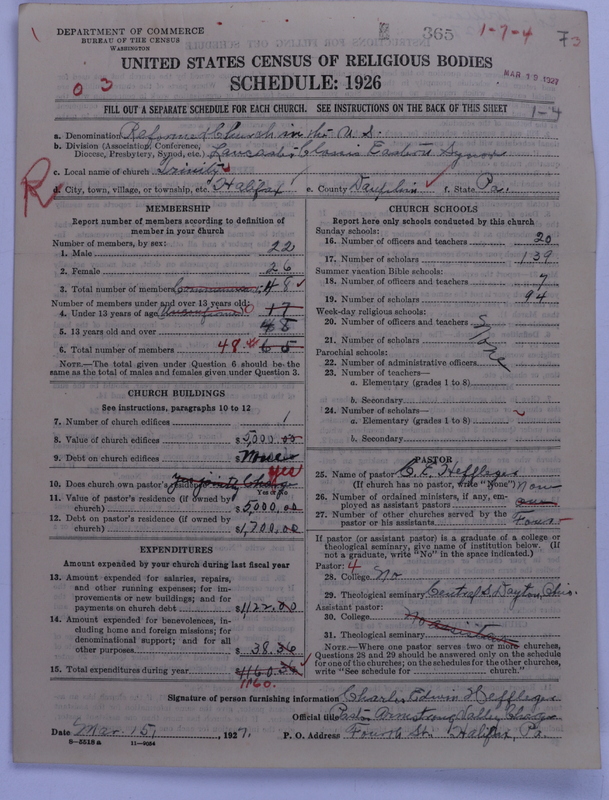 DEPARTMENT OF COMMERCE
BUREAU OF THE CENSUS
WASHINGTON
365
1-7-4
73
UNITED STATES CENSUS OF RELIGIOUS BODIES
SCHEDULE: 1926
MAR 19 1927
0 3
FILL OUT A SEPARATE SCHEDULE FOR EACH CHURCH. SEE INSTRUCTIONS ON THE BACK OF THIS SHEET
1-4
a. Denomination Reformed Church in the U.S.
b. Division (Association, Conference, Diocese, Presbytery, Synod, etc.) Lancaster Classis Eastern Synod
c. Local name of church Trinity
R
d. City, town, village, or township, etc. Halifax e. County Dauphin f. State Pa.
MEMBERSHIP
Report number of members according to definition of
member in your church
Number of members, by sex:
1. Male 22
2. Female 26
3. Total number of members 48
Number of members under and over 13 years old:
4. Under 13 years of age 0 17
5. 13 years old and over 48
6. Total number of members 48 65
NOTE.—The total given under Question 6 should be the
same as the total of males and females given under Question 3.
CHURCH BUILDINGS
See instructions, paragraphs 10 to 12
7. Number of church edifices 1
8. Value of church edifices $5,000.00
9. Debt on church edifices $ None
yes
10. Does church own pastor's residence?
Yes or No
11. Value of pastor's residence (if owned by
church) $5,000.00
12. Debt on pastor's residence (if owned by
church) $1,700.00
EXPENDITURES
Amount expended by your church during last fiscal year
13. Amount expended for salaries, repairs,
and other running expenses; for im-
provements or new buildings; and for
payments on church debt $1122.00
14. Amount expended for benevolences, in-
cluding home and foreign missions; for
denominational support; and for all
other purposes $38.36
15. Total expenditures during year $1160.36
1160.
CHURCH SCHOOLS
Report here only schools conducted by this church
Sunday schools:
16. Number of officers and teachers 20
17. Number of scholars 139
Summer vacation Bible schools:
18. Number of officers and teachers 7
19. Number of scholars 94
Week-day religious schools:
20. Number of officers and teachers
21. Number of scholars None
Parochial schools:
22. Number of administrative officers
23. Number of teachers—
a. Elementary (grades 1 to 8)
b. Secondary
24. Number of scholars—
a. Elementary (grades 1 to 8)
b. Secondary
PASTOR
25. Name of pastor C. E. Heffleger
(If church has no pastor, write "None") None
26. Number of ordained ministers, if any, em-
ployed as assistant pastors
27. Number of other churches served by the
pastor or his assistants Four
If pastor (or assistant pastor) is a graduate of a college or
theological seminary, give name of institution below. (If
not a graduate, write "No" in the space indicated.)
Pastor: 4
28. College No
29. Theological seminary Central S. Dayton, Ohio.
Assistant pastor:
30. College
31. Theological seminary
NOTE.—Where one pastor serves two or more churches,
Questions 28 and 29 should be answered only on the schedule
for one of the churches; on the schedules for the other churches,
write "See schedule for church."
Signature of person furnishing information Charles Edwin Heffleger
Official title Pastor Armstrong Valley Charge
Date Mar. 15, 1927. P. O. Address Fourth St. Halifax, Pa.
8-5518a 11-9034